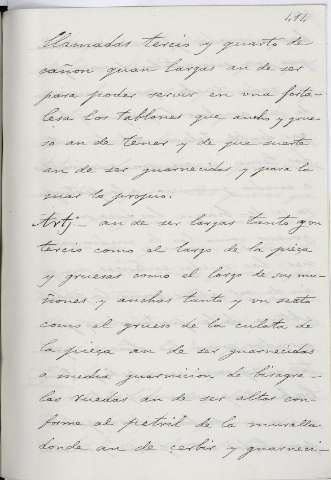 191
llamadas tercio y quarto de
cañon quan largas an de ser
para poder servir en vna forta-
lesa los tablones que ancho y grue-
so an de tener y de que suerte
an de ser guarnecidas y para la
mar lo propio.
Artj.- an de ser largas tanto y un
tercio como el largo de la pieça
y gruesas como el largo de sus mu-
ñones y anchas tanto y vn sesto
como el grueso de la culata de
la pieça an de ser guarnecidas
a media guarnicion de bisagra-
las ruedas an de ser altas con-
forme al petril de la muralla
donde an de serbir y guarneci-